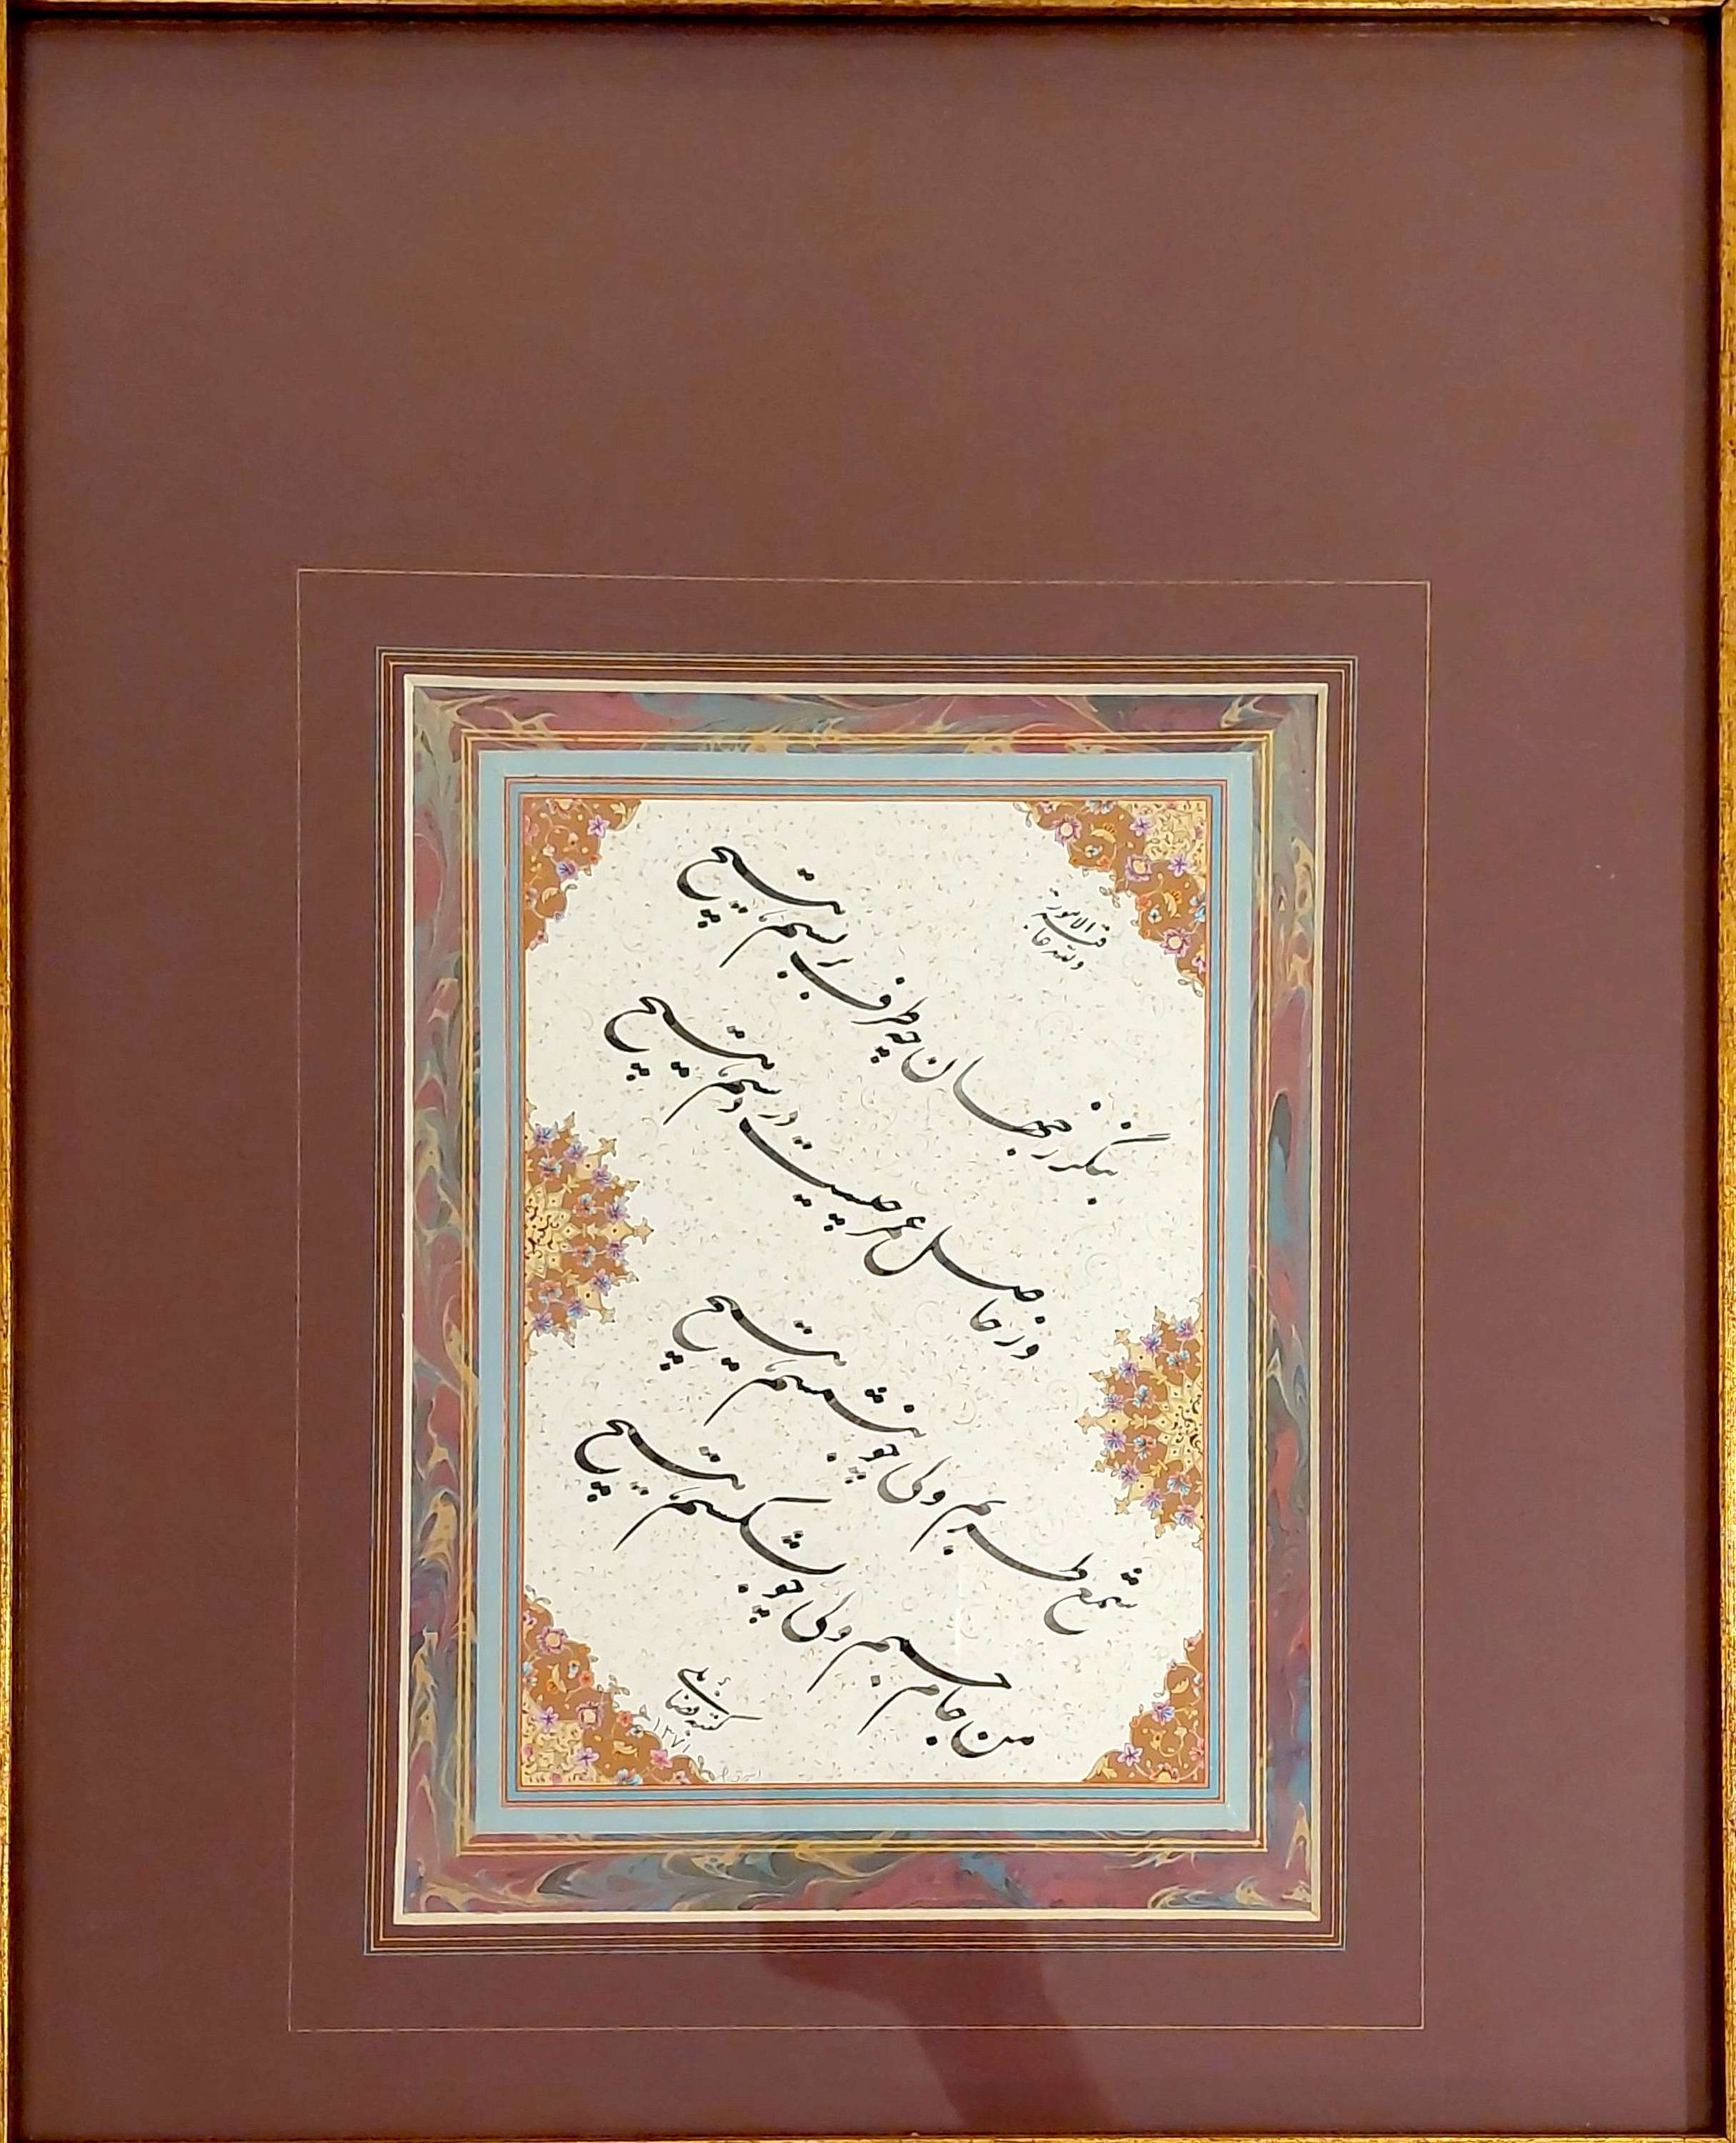 ولله عاقبة الامور
بنگر ز جهان چه طرف بر بستم هیچ
وز حاصل عمر چیست در دستم هیچ
شمع طربم ولی چو بنشستم هیچ
من جام جمم ولی چو بشکستم هیچ
کتبه
۱۳۷۱